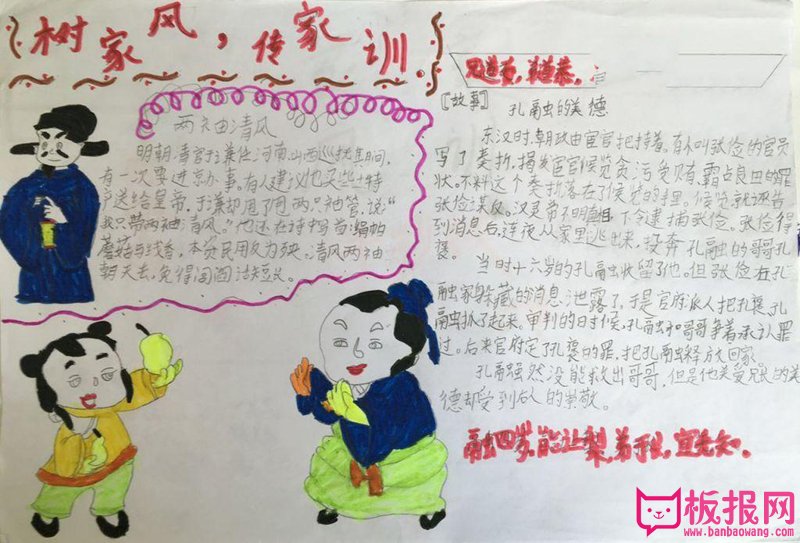 树家风，传家训
两袖清风
明朝,清官于谦任河南,山西巡抚期间,
有一次要进京办事,有人建议他买些土特
产送给皇帝,于谦却甩了甩两只袖管,说“
我只带两袖清风。”他还在诗中写首:绢帕
蘑菇与线香,本资民用反为殃。清风两袖
朝天去,免得闾阎话短长。
兄道友,弟道恭。
【故事】 孔融的美德
东汉时,朝政由宦官把持着,有人叫张俭的官员
写了奏折,揭发宦官侯览贪污受贿,霸占良田的罪
状。不料这个奏折落在了侯览的手里。侯览就诬告
张俭谋反。汉灵帝不明真相,下令逮捕张俭。张俭得
到消息后,连夜从家里逃出来,投奔孔融的哥哥孔
褒。
当时十六岁的孔融收留了他。但张俭在孔
融家躲藏的消息泄露了,于是官府派人把孔褒、孔
融抓了起来。审判的时候,孔融和哥哥争着承认罪
过。后来官府定了孔褒的罪,把孔融释放回家。
孔融虽然没能救出哥哥,但是他关爱兄长的美
德却受到后人的崇敬。
融四岁,能让梨,弟于长,宜先知。
板报网
www.banbaowang.com